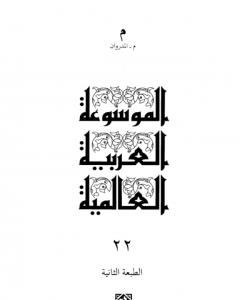 م
م - اندروان
الموسوعة
العربية
العالمية
٢٢
الطبعة الثانية